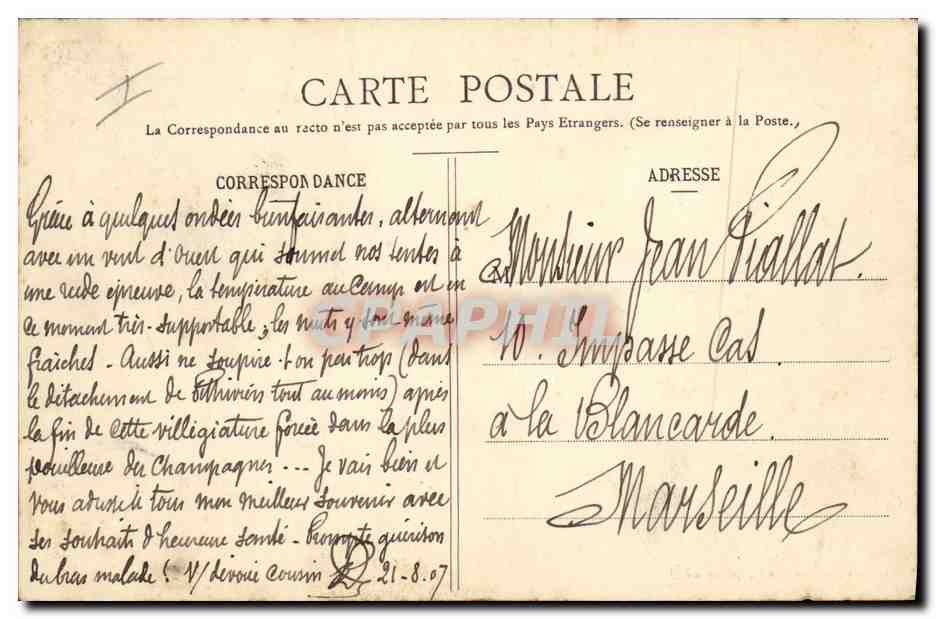 CARTE POSTALE
La Correspondance au racto n'est pas acceptée par tous les Pays Etrangers. (Se renseigner à la Poste.,
CORRESPONDANCE
Grâce à quelques ondées bienfaisantes, alternant
avec un vent d'Ouest qui soumet nos tentes à
une rude épreuve, la température au Camp est en
ce moment très-supportable; les nuits y sont même
fraîches - Aussi ne soupire-t-on pas trop (dans
le détachement de Pithiviers tout au moins) après
la fin de cette villégiature forcée dans la plus
pouilleuse des Champagnes --- Je vais bien et
vous adresse à tous mon meilleur souvenir avec
ses souhaits d'heureuse santé - Prompte guérison
du bras malade! V/ dévoué cousin
21-8.07
ADRESSE
Monsieur Jean Viallat.
10. Impasse Cas
à la Blancarde.
Marseille
CPAPHIL